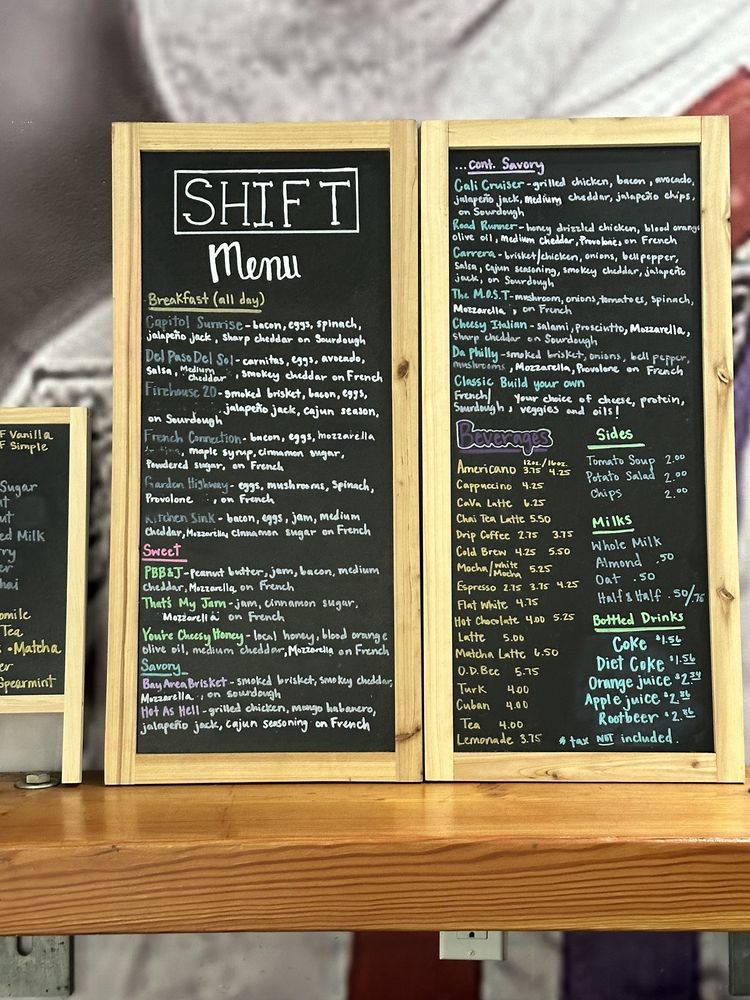 F Vanilla
F Simple
Sugar
ed Milk
Tea
Matcha
Spearmint
SHIFT
Menu
Breakfast (all day)
Capitol Sunrise - bacon, eggs, spinach,
jalapeño jack, sharp cheddar on Sourdough
Del Paso Del Sol - carnitas, eggs, avocado,
salsa, Medium cheddar, smokey cheddar on French
Firehouse 20 - smoked brisket, bacon, eggs,
jalapeño jack, cajun season,
on Sourdough
French Connection - bacon, eggs, mozzarella
, maple syrup, cinnamon sugar,
Powdered sugar, on French
Garden Highway - eggs, mushrooms, Spinach,
Provolone , on French
Kitchen Sink - bacon, eggs, jam, medium
cheddar, Mozzarella, cinnamon sugar on French
Sweet
PBB&J - peanut butter, jam, bacon, medium
cheddar, Mozzarella on French
That's My Jam - jam, cinnamon sugar,
Mozzarella on French
You're Cheesy Honey - local honey, blood orange
olive oil, medium cheddar, Mozzarella on French
Savory
Bay Area Brisket - smoked brisket, smokey cheddar,
Mozzarella, on sourdough
Hot As Hell - grilled chicken, mango habanero,
jalapeño jack, cajun seasoning on French
...cont. Savory
Cali Cruiser - grilled chicken, bacon, avocado,
jalapeño jack, medium cheddar, jalapeño chips,
on Sourdough
Road Runner - honey drizzled chicken, blood orange
olive oil, medium cheddar, Provolone, on French
Carrera - brisket/chicken, onions, bell pepper,
Salsa, cajun seasoning, smokey cheddar, jalapeño
jack, on Sourdough
The M.O.S.T - mushroom, onions, tomatoes, spinach,
Mozzarella, on French
Cheesy Italian - salami, prosciutto, Mozzarella,
sharp cheddar on Sourdough
Da Philly - smoked brisket, onions, bell pepper,
mushrooms, Mozzarella, Provolone on French
Classic Build your own
French/ your choice of cheese, protein,
Sourdough, veggies and oils!
Beverages
12oz. / 16oz.
Americano 3.75 4.25
Cappuccino 4.25
CaVa Latte 6.25
Chai Tea Latte 5.50
Drip Coffee 2.75 3.75
Cold Brew 4.25 5.50
Mocha/White Mocha 5.25
Espresso 2.75 3.75 4.25
Flat White 4.75
Hot Chocolate 4.00 5.25
Latte 5.00
Matcha Latte 6.50
O.D.Bee 5.75
Turk 4.00
Cuban 4.00
Tea 4.00
Lemonade 3.75
Sides
Tomato Soup 2.00
Potato Salad 2.00
Chips 2.00
Milks
Whole Milk
Almond .50
Oat .50
Half & Half .50/.75
Bottled Drinks
Coke $1.56
Diet Coke $1.56
Orange juice $2.
Apple juice $2.
Rootbeer $2.
* tax NOT included.